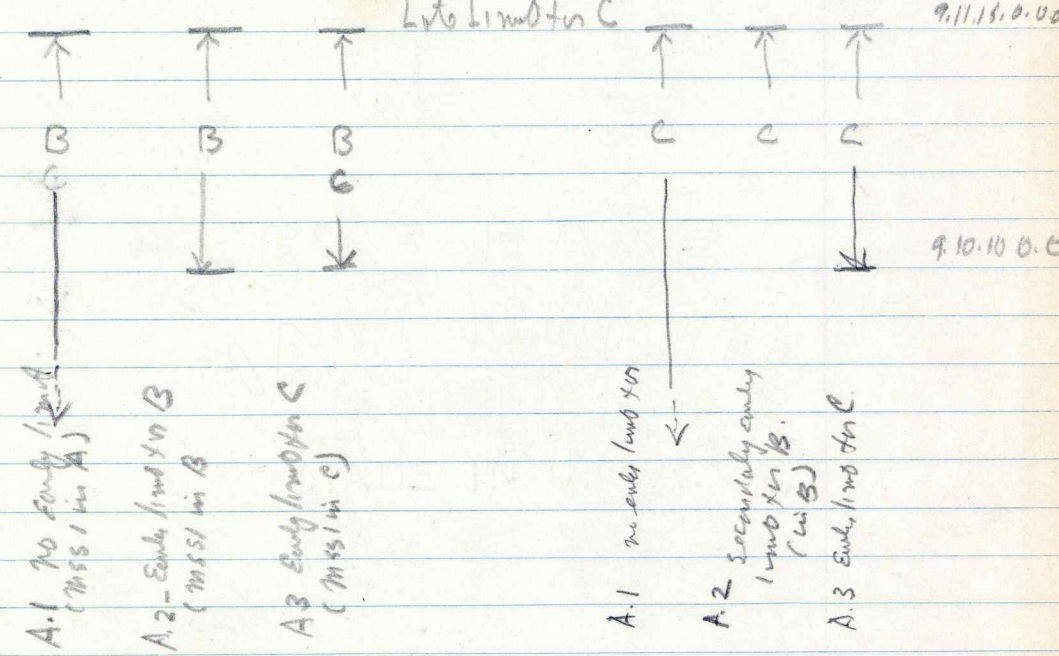 Late Limit for C
9.11.15.0.0
B B B C C C
C C
9.10.10.0.0
A.1 no early limit
(MSS1 in A)
A.2 - Early limit for B
(MSS1 in B
A3 Early limit for C
(MSS1 in C)
A.1 no early limit for
A.2 Secondary early
limit for B.
(in B)
A.3 Early limit for C.